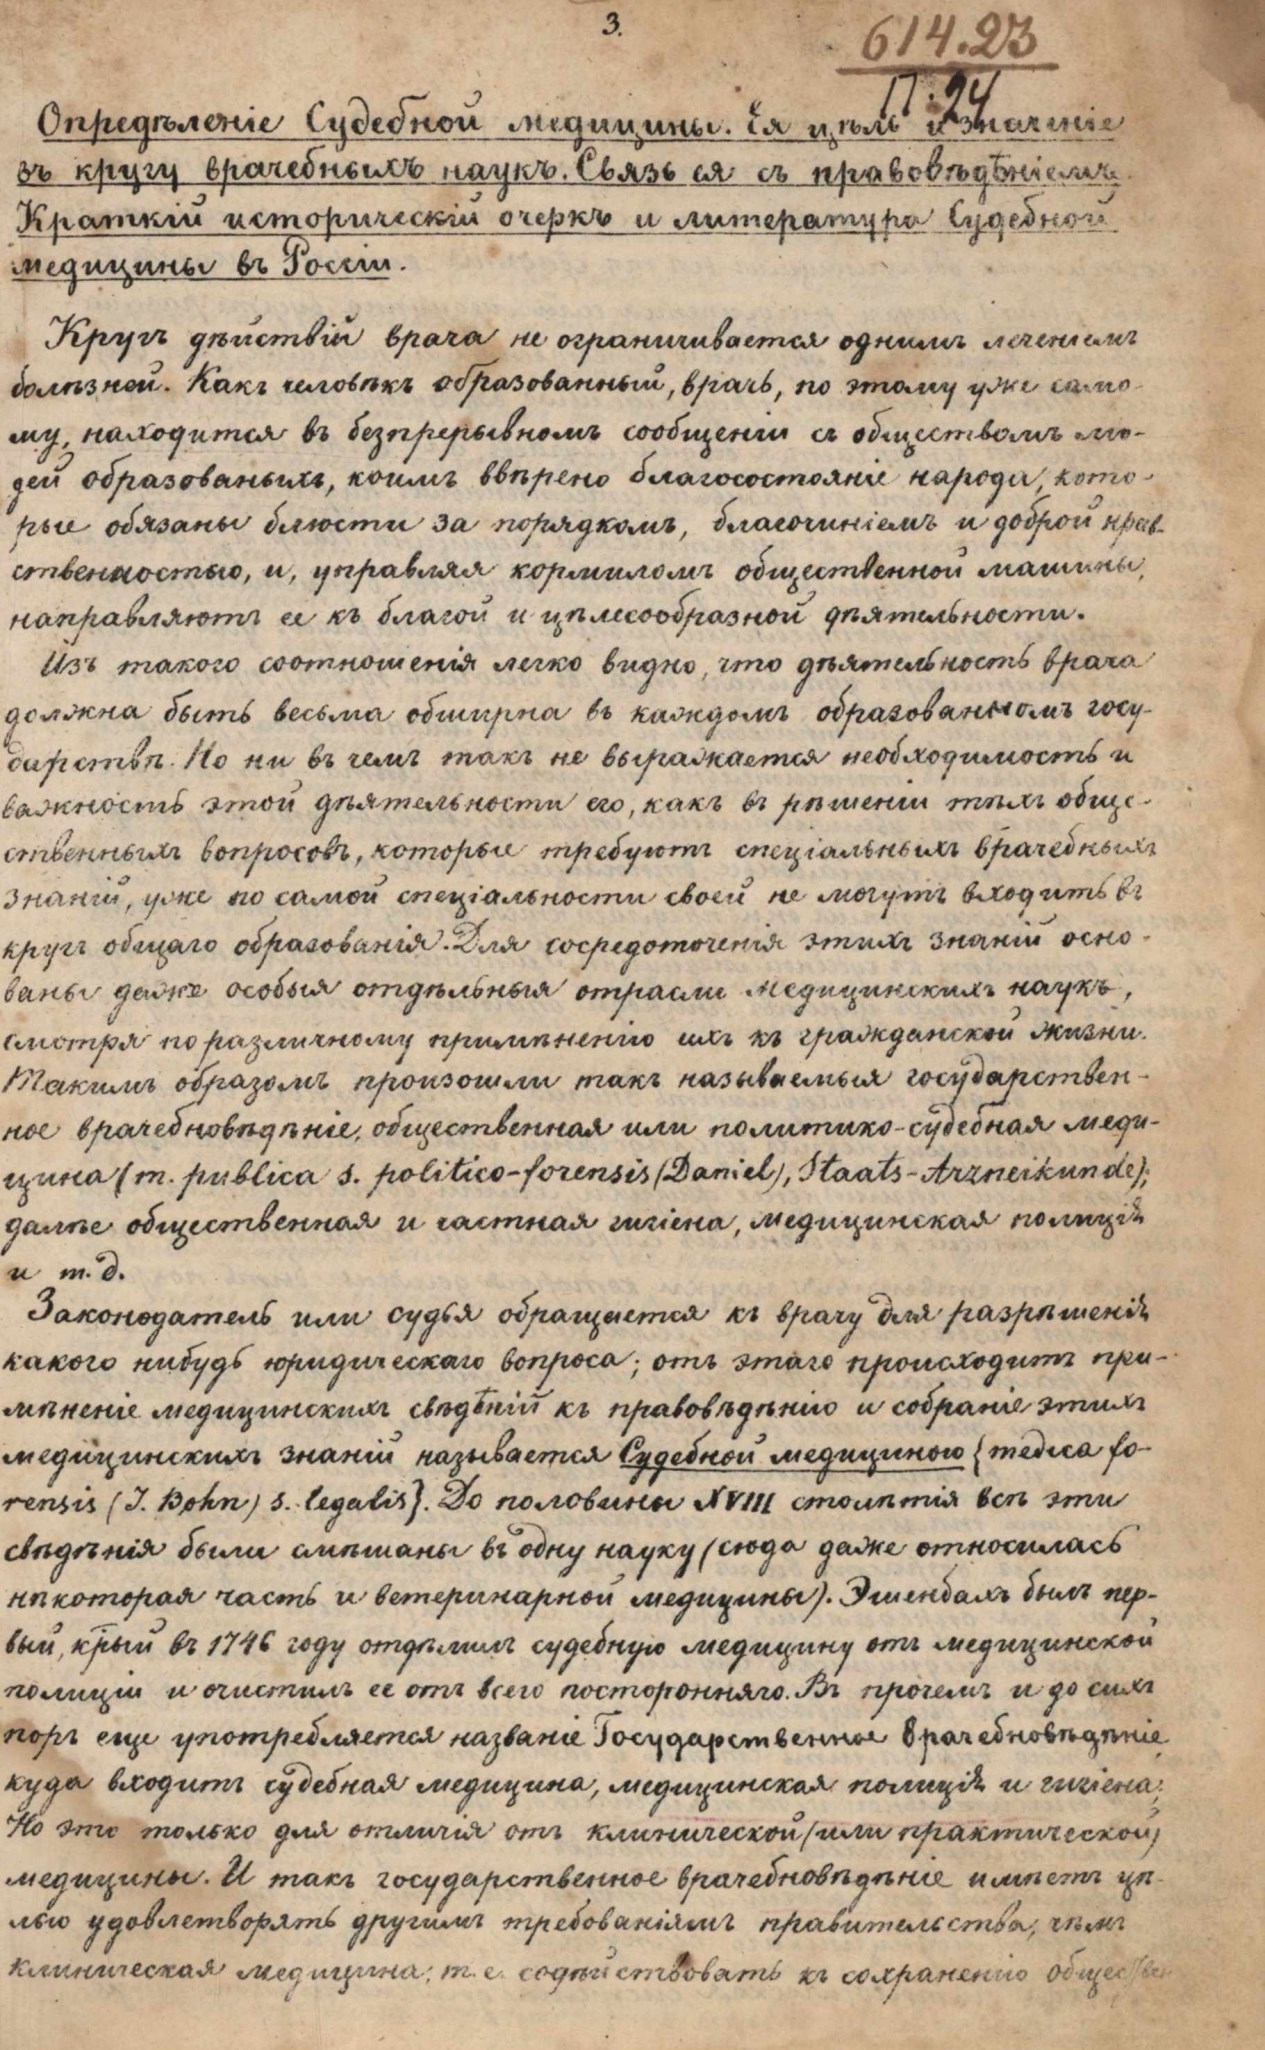 3.
614.23
П.24
Опредѣленіе Судебной медицины. Ея цѣль и значеніе
въ кругу врачебныхъ наукъ. Связь ея съ правовѣдѣніемъ.
Краткій историческій очеркъ и литература Судебной
медицины въ Россіи.
Кругъ дѣйствій врача не ограничивается однимъ леченіемъ
болѣзней. Какъ человѣкъ образованный, врачъ, по этому уже само-
му, находится въ безпрерывномъ сообщеніи съ обществомъ лю-
дей образованыхъ, коимъ ввѣрено благосостояніе народа, кото-
рые обязаны блюсти за порядкомъ, благочиніемъ и доброй нрав-
ственностью, и, управляя кормиломъ общественной машины,
направляютъ ее къ благой и цѣлесообразной дѣятельности.
Изъ такого соотношенія легко видно, что дѣятельность врача
должна быть весьма обширна въ каждомъ образованномъ госу-
дарствѣ. Но ни въ чемъ такъ не выражается необходимость и
важность этой дѣятельности его, какъ въ рѣшеніи тѣхъ обще-
ственныхъ вопросовъ, которые требуютъ спеціальныхъ врачебныхъ
знаній, уже по самой спеціальности своей не могутъ входить въ
кругъ общаго образованія. Для сосредоточенія этихъ знаній осно-
ваны даже особыя отдѣльныя отрасли медицинскихъ наукъ,
смотря по различному примѣненію ихъ къ гражданской жизни.
Такимъ образомъ произошли такъ называемыя государствен-
ное врачебновѣдѣніе, общественная или политико-судебная меди-
цина (m. publica s. politico-forensis (Daniel), Staats-Arzneikunde);
далѣе общественная и частная гигіена, медицинская полиція
и т.д.
Законодатель или судья обращается къ врачу для разрѣшенія
какого нибудь юридическаго вопроса; отъ этаго происходитъ при-
мѣненіе медицинскихъ свѣдѣній къ правовѣдѣнію и собраніе этихъ
медицинскихъ знаній называется Судебной медициною {medica fo-
rensis (J. Bohn) s. legalis}. До половины XVIII столѣтія всѣ эти
свѣдѣнія были смѣшаны въ одну науку (сюда даже относилась
нѣкоторая часть и ветеринарной медицины). Эшенбахъ былъ пер-
вый, к̄рый въ 1746 году отдѣлилъ судебную медицину отъ медицинской
полиціи и очистилъ ее отъ всего посторонняго. Въ прочемъ и до сихъ
поръ еще употребляется названіе Государственное Врачебновѣдѣніе,
куда входитъ судебная медицина, медицинская полиція и гигіена;
Но это только для отличія отъ клинической (или практической)
медицины. И такъ государственное врачебновѣдѣніе имѣетъ цѣ-
лью удовлетворять другимъ требованіямъ правительства, чѣмъ
клиническая медицина, т.е. содѣйствовать къ сохраненію обществен